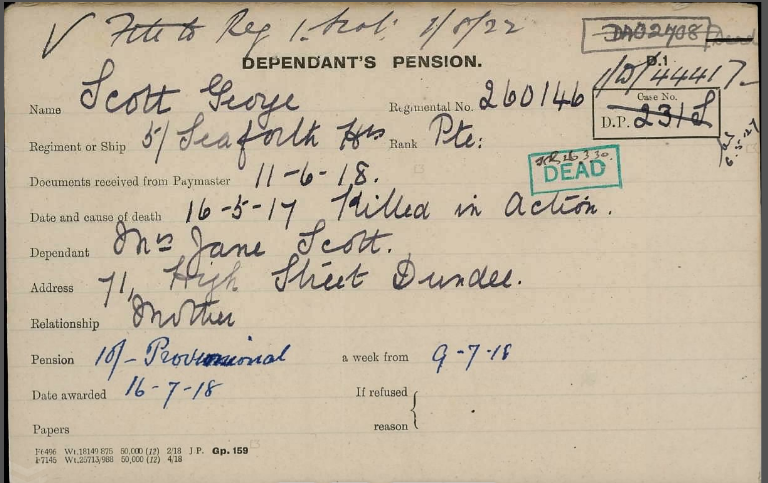 V File to Reg 1. Scot: 2/8/22
DA02708 Dead
DEPENDANT'S PENSION.
D.1
1/D/44417
Name Scott George
Regimental No. 260146
Case No.
D.P. 231 S
Regiment or Ship 5/ Seaforth Hrs Rank Pte:
6.5.27
Documents received from Paymaster 11-6-18.
DEAD
Date and cause of death 16-5-17 Killed in Action.
Dependant Mrs Jane Scott.
Address 71, High Street Dundee.
Relationship Mother
Pension 10/- Provisional a week from 9-7-18
Date awarded 16-7-18 If refused
reason
Papers
F6496 Wt.18149 875 50,000 (12) 2/18 J P. Gp. 159
F7145 Wt.25713/988 50,000 (12) 4/18